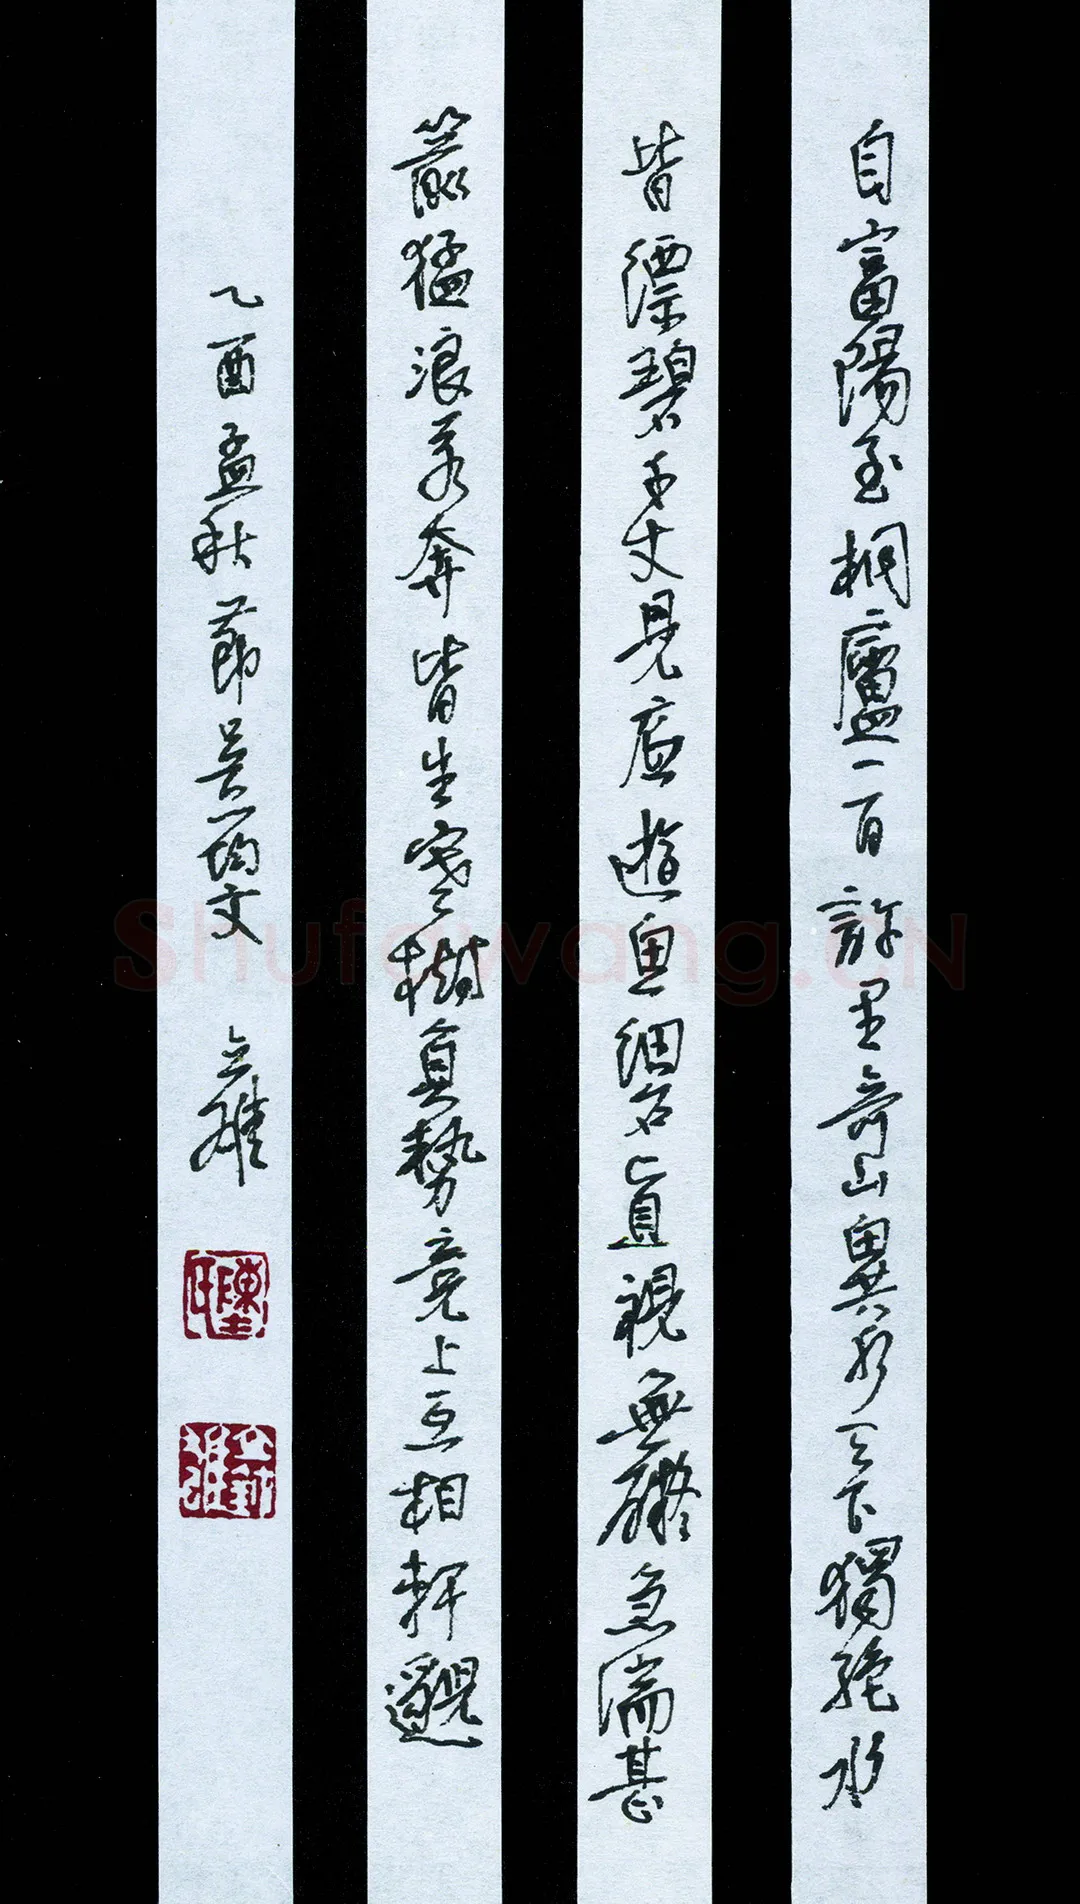 自富陽至桐廬一百許里奇山異水天下獨絕水
皆縹碧千丈見底遊魚細石直視無礙急湍甚
箭猛浪若奔皆生寒樹負勢競上互相軒邈
乙酉孟秋節吳均文 立雄
Shufawang.CN